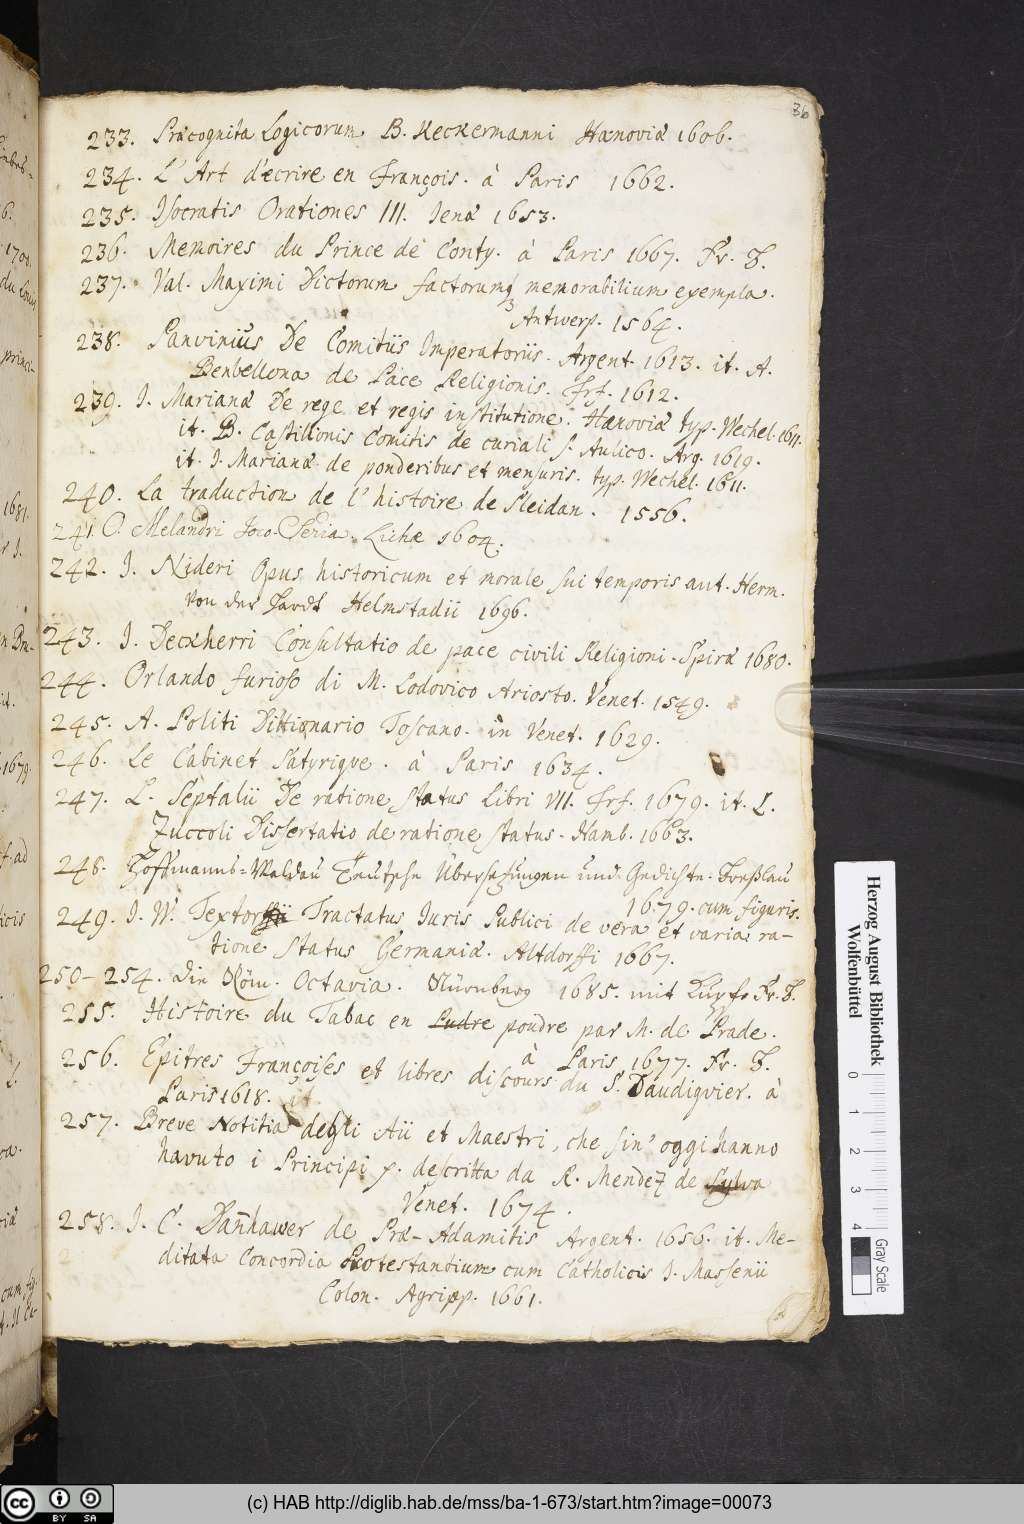 36
233. Præcognita Logicorum B. Keckermanni Hanoviæ 1606.
234. L'Art d'écrire en François. à Paris 1662.
235. Isocratis Orationes III. Jenæ 1653.
236. Memoires du Prince de Conty. à Paris 1667. Fr. B.
237. Val. Maximi Dictorum factorumq3 memorabilium exempla.
Antwerp. 1564.
238. Panvinius De Comitiis Imperatoriis. Argent. 1613. it. A.
Benbellona de Pace Religionis. Frf. 1612.
239. I. Marianæ De rege et regis institutione. Hanoviæ typ. Wechel. 1611.
it. B. Castilionis Comitis de curiali s. Aulico. Arg. 1619.
it. I. Marianæ de ponderibus et mensuris. typ. Wechel. 1611.
240. La traduction de l'histoire de Sleidan. 1556.
241. O. Melandri Joco-Seria. Lichæ 1604.
242. I. Nideri Opus historicum et morale sui temporis aut. Herm.
von der Hardt Helmstadii 1696.
243. I. Deckherri Consultatio de pace civili Religioni. Spiræ 1680.
244. Orlando furioso di M. Lodovico Ariosto. Venet. 1549.
245. A. Politi Dittionario Toscano. in Venet. 1629.
246. Le Cabinet Satyrique. à Paris 1634.
247. L. Septalii De ratione status Libri VII. Frf. 1679. it. L.
Zuccoli Dissertatio de ratione status. Hamb. 1663.
248. Hoffmanns-Waldau Teutsche Übersetzungen und Gedichte. Breßlau
1679. cum figuris.
249. I. W. Textor Tractatus Juris Publici de vera et varia ra-
tione status Germaniæ. Altdorffi 1667.
250-254. Die Röm. Octavia. Nürnberg 1685. mit Kupf. Fr. B.
255. Histoire du Tabac en poudre par M. de Prade.
à Paris 1677. Fr. B.
256. Epitres Françoises et libres discours du S. Daudiguier. à
Paris 1618.
257. Breve Notitia degli Aii et Maestri, che sin' oggi hanno
havuto i Principi descritta da R. Mendez de Sylva
Venet. 1674.
258. I. C. Dannhawer de Præ-Adamitis Argent. 1656. it. Me-
ditata Concordia Protestantium cum Catholicis I. Massenii
Colon. Agripp. 1661.
Herzog August Bibliothek
Wolfenbüttel
0 1 2 3 4
Gray Scale
(c) HAB http://diglib.hab.de/mss/ba-1-673/start.htm?image=00073
cc BY SA